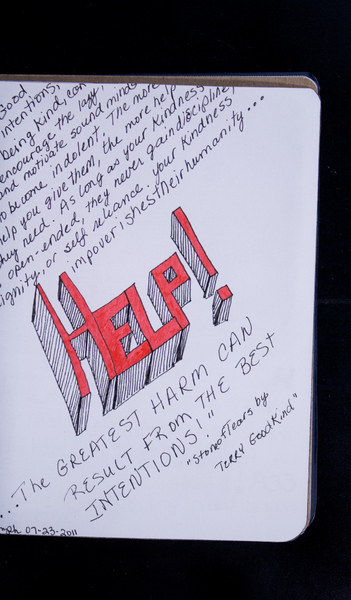 Good
intentions,
being kind, can
encourage the lazy,
and motivate sound minds
to become indolent. The more
help you give them, the more help
they need. As long as your kindness
is open-ended, they never gain discipline,
dignity, or self reliance. your kindness
impoverishes their humanity...
HELP!
...The GREATEST HARM CAN
RESULT FROM THE BEST
INTENTIONS!"
"Stone of Tears by
Terry Goodkind"
07-23-2011